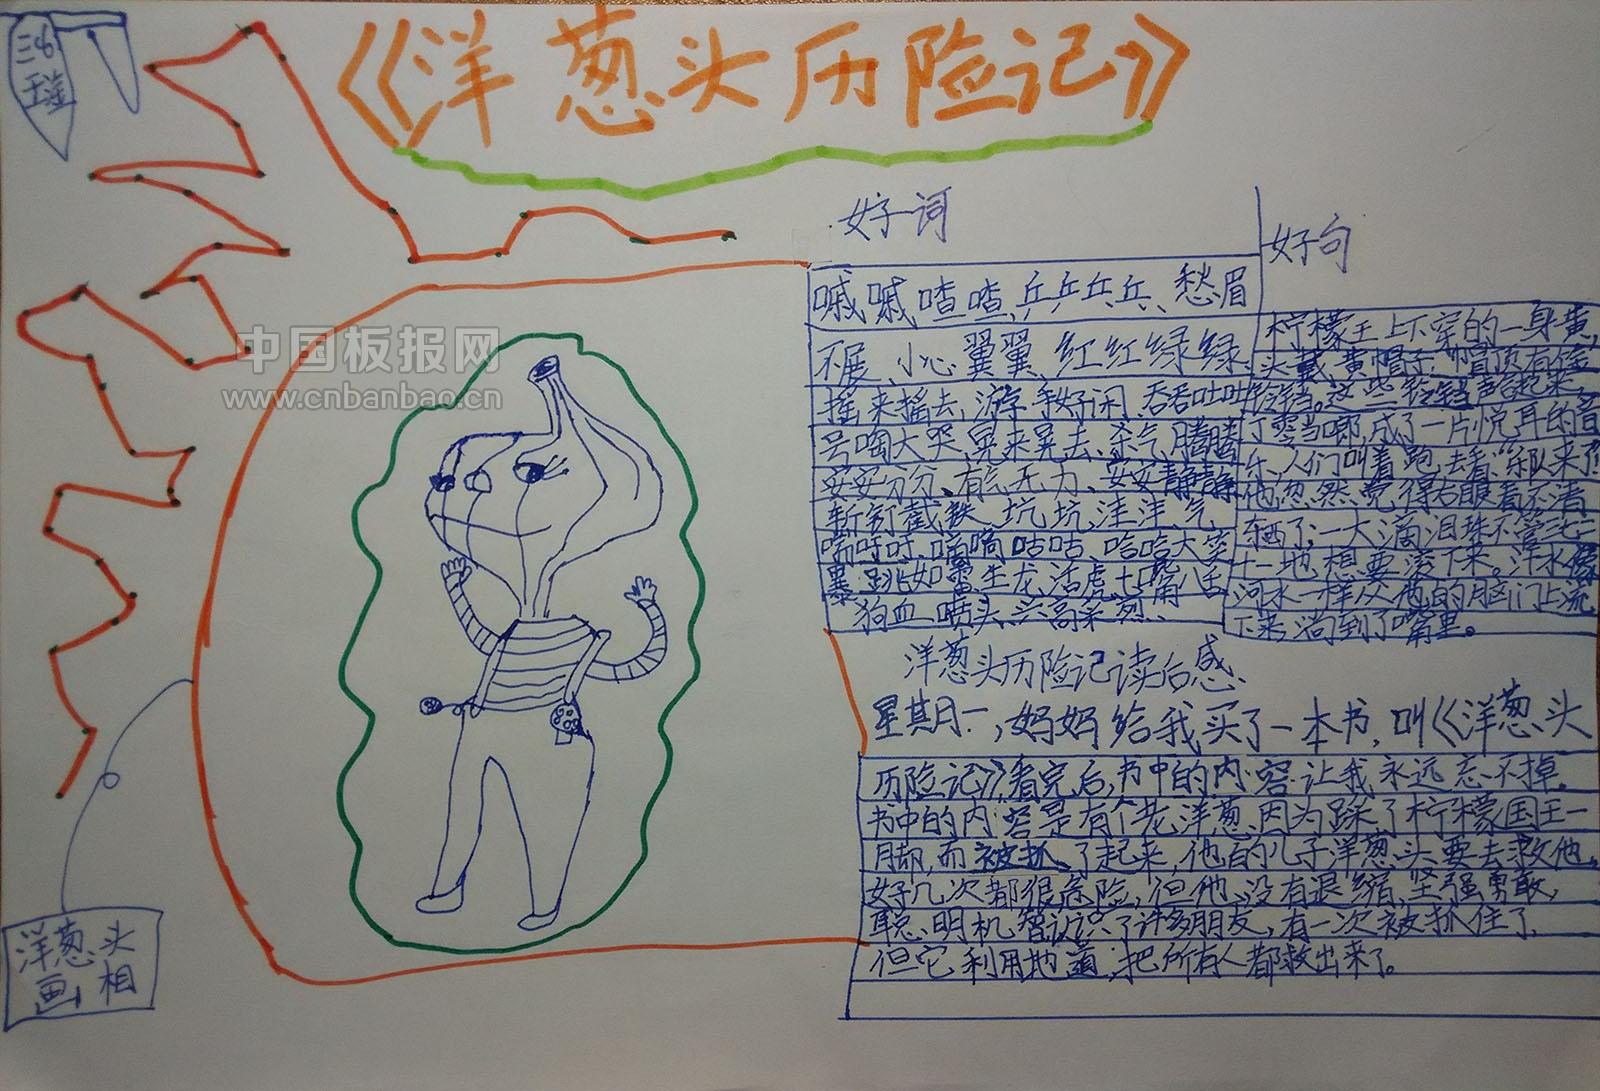 《洋葱头历险记》
三6
王滢
中国板报网
www.cnbanbao.cn
好词
嘁嘁喳喳、乒乒乓乓、愁眉
不展、小心翼翼、红红绿绿
摇来摇去、游手好闲、吞吞吐吐
号啕大哭、晃来晃去、杀气腾腾
安安分分、有气无力、安安静静
斩钉截铁、坑坑洼洼、气
喘吁吁、嘀嘀咕咕、哈哈大笑
暴跳如雷、生龙活虎、七嘴八舌
狗血喷头、兴高采烈、
好句
柠檬王上下穿的一身黄,
头戴黄帽子,帽顶有金
铃铛。这些铃铛声起来
丁零当啷,成了一片悦耳的音
乐、人们叫着跑去看“乐队来了
他忽然觉得右眼看不清
东西了,一大滴泪珠不管三七二
十一地想要滚下来。洋水像
河水一样从他的脑门上流
下来,淌到了嘴里。
洋葱头历险记读后感
星期一,妈妈给我买了一本书,叫《洋葱头
历险记》,看完后,书中的内容让我永远忘不掉。
书中的内容是有个老洋葱,因为踩了柠檬国王一
脚,而被抓了起来,他的儿子洋葱头要去救他。
好几次都很危险,但他没有退缩,坚强勇敢,
聪明机智,认识了许多朋友,有一次被抓住了,
但它利用地道,把所有人都救出来了。
洋葱头
画相